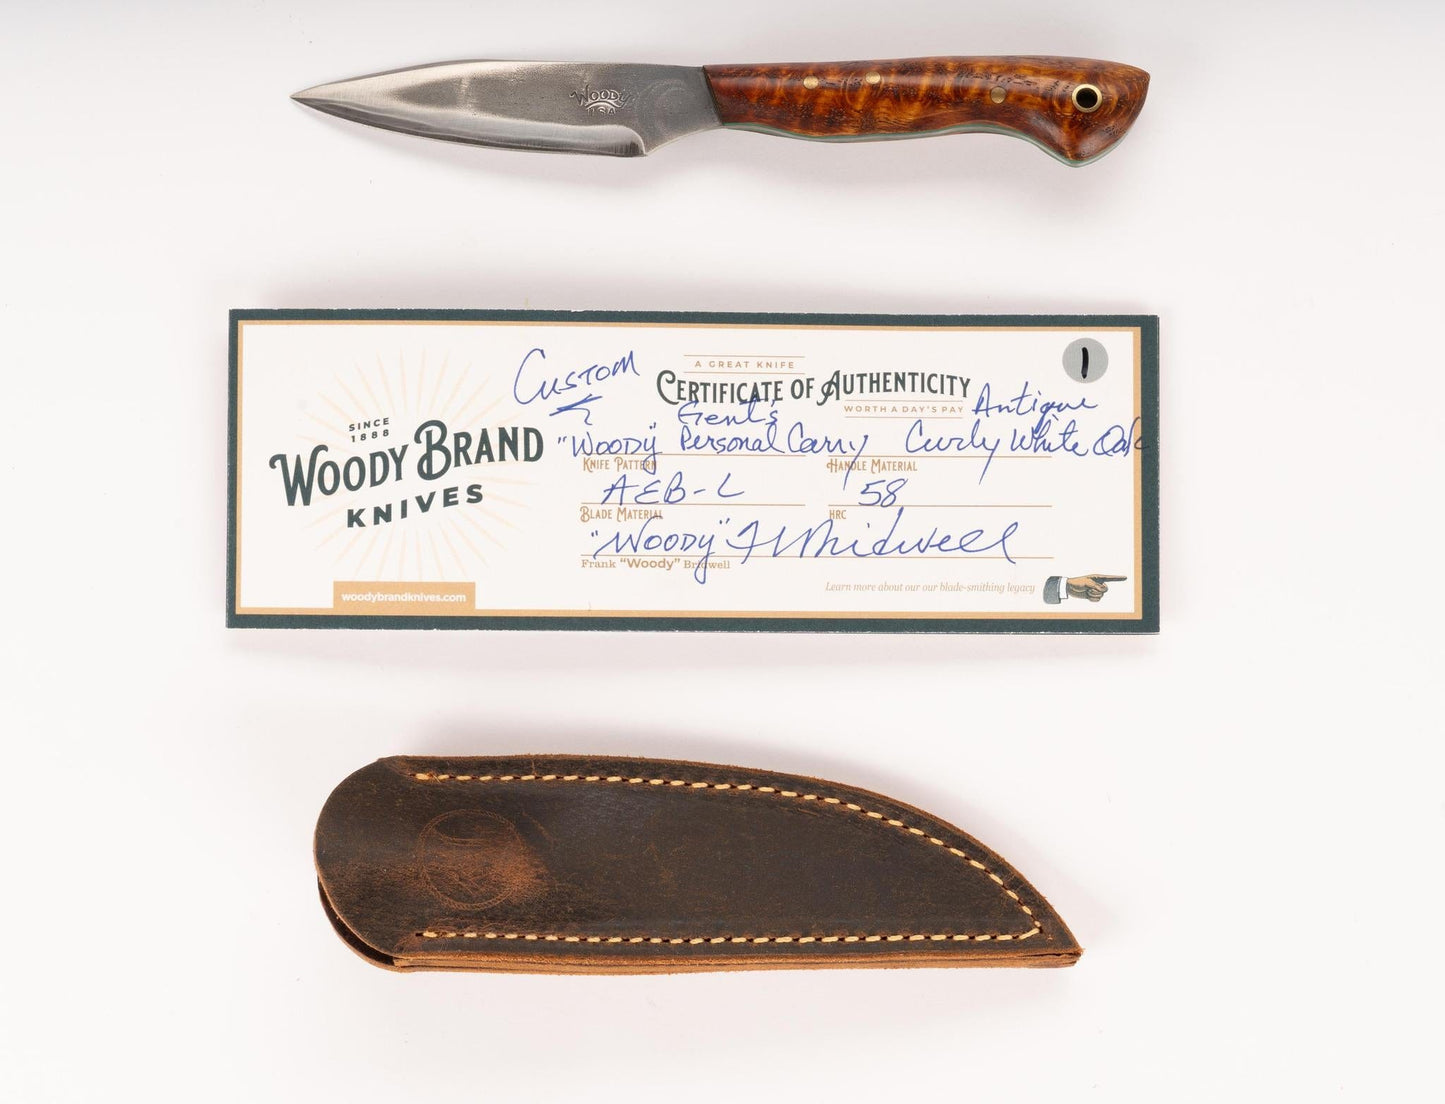 WOODY
USA
1
SINCE
1888
WOODY BRAND
KNIVES
woodybrandknives.com
Custom
A GREAT KNIFE
CERTIFICATE OF AUTHENTICITY
WORTH A DAY'S PAY
Gent's
Antique
"Woody" Personal Carry Curly White Oak
KNIFE PATTERN HANDLE MATERIAL
AEB-L 58
BLADE MATERIAL HRC
"Woody"
Frank "Woody" Bridwell
Learn more about our our blade-smithing legacy